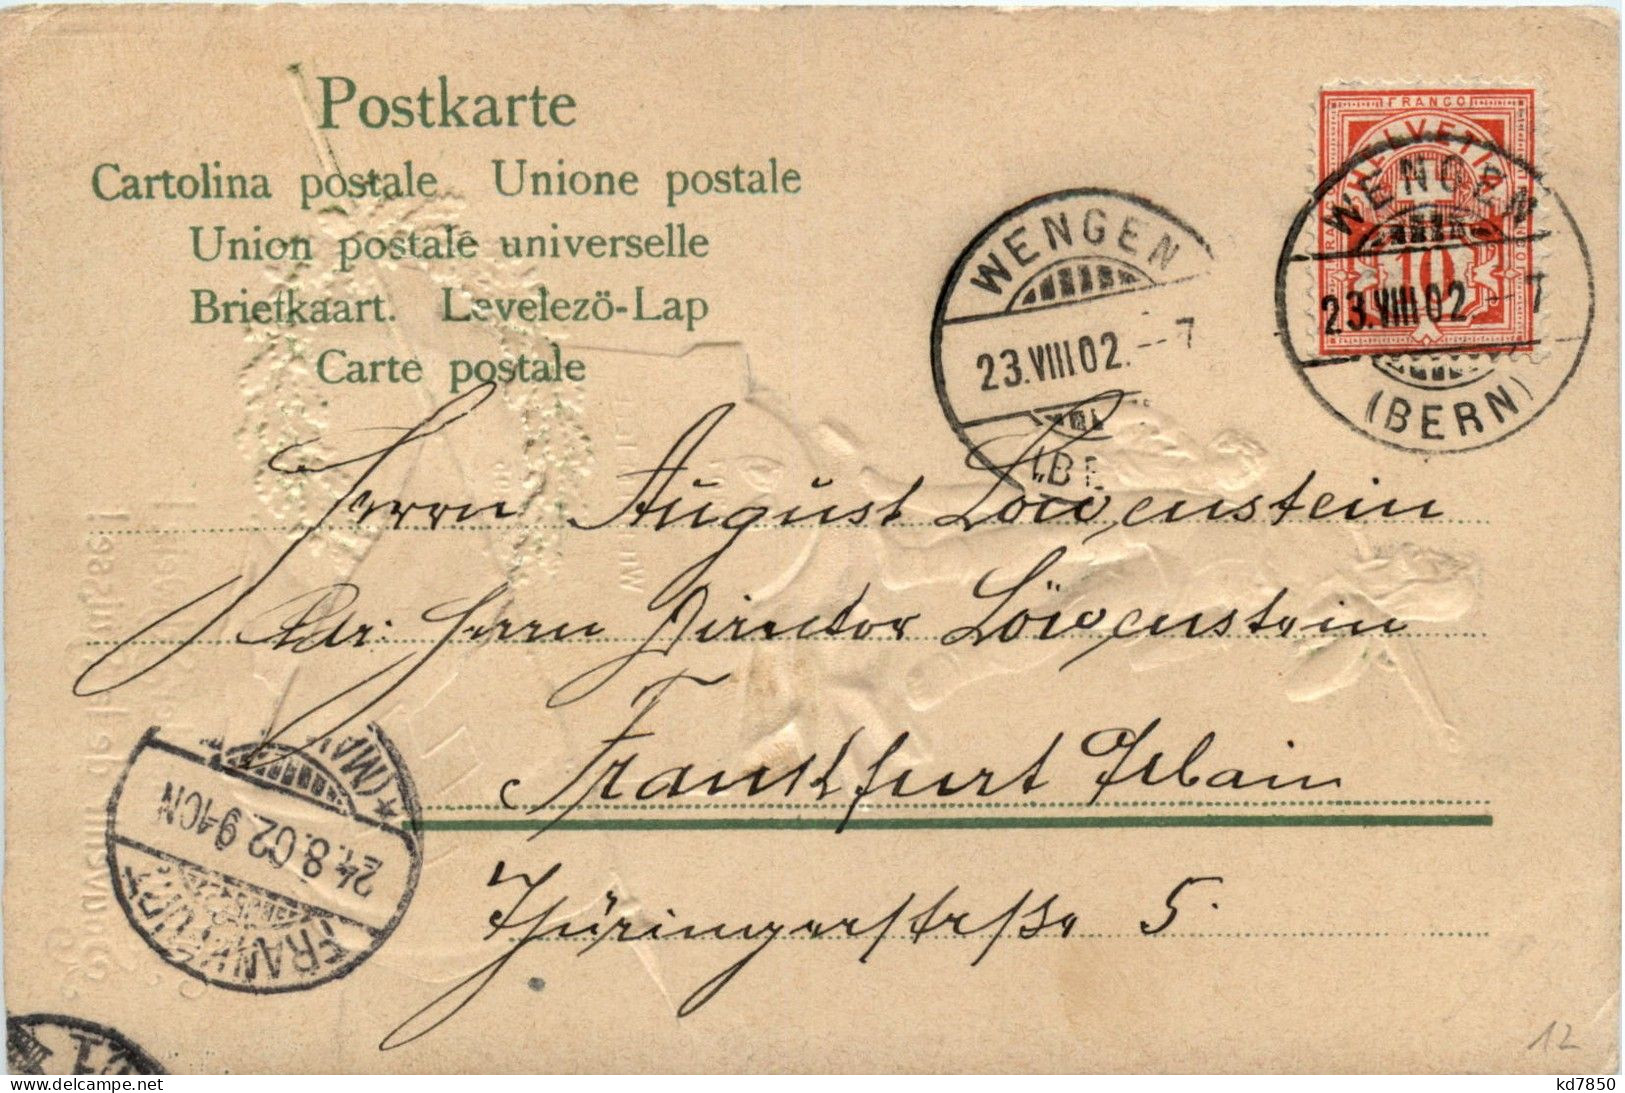 Postkarte
Cartolina postale Unione postale
Union postale universelle
Briefkaart. Levelezö-Lap
Carte postale
FRANCO
HELVETIA
10
WENGEN
23.VIII 02. --7
(BERN)
WENGEN
23.VIII 02. --7
(BE
Herrn August Löwenstein
Adr: Herrn Director Löwenstein
Frankfurt Main
Thüringerstrße 5.
FRANKFURT
24.8.02. 9-10N
* (MAI
12
kd7850